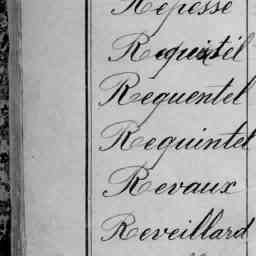 Repesse
Requistel
Requentel
Requintel
Revaux
Reveillard